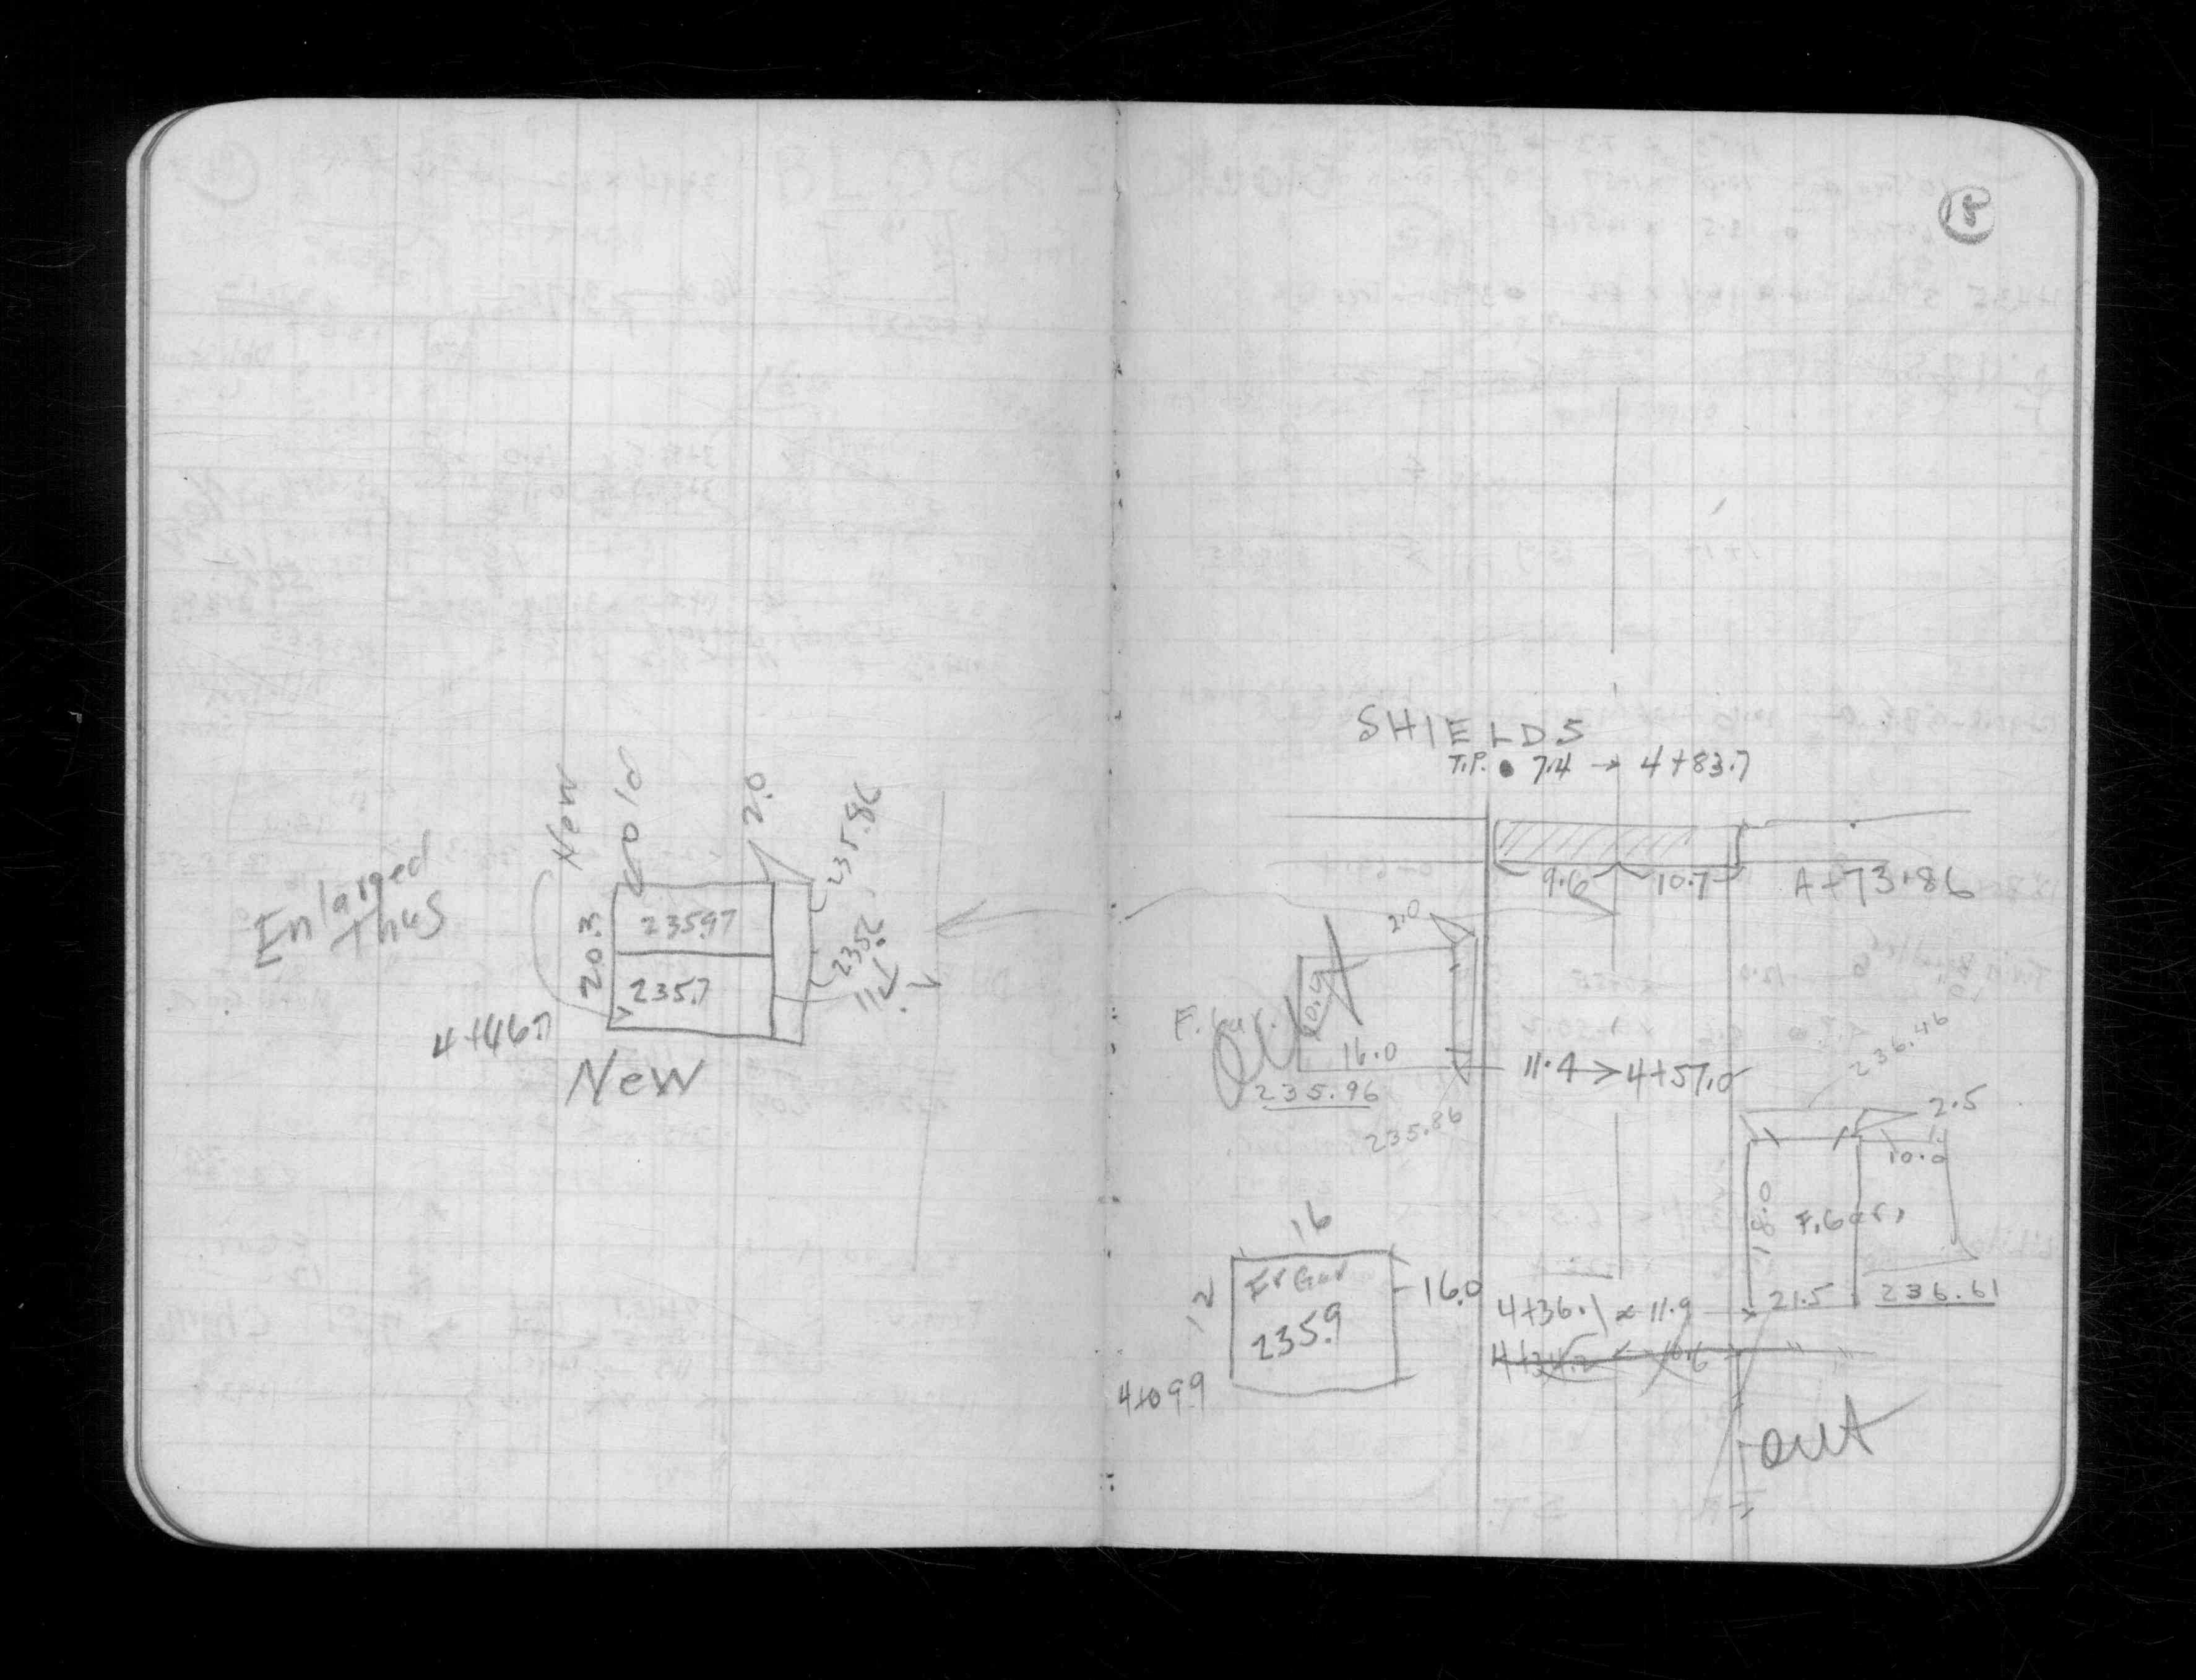 New
Old
2.0
235.86
Enlarged
thus
20.3
235.97
235.7
4+46.7
New
15
SHIELDS
T.P. 7.4 → 4+83.7
9.6
10.7
A+73.86
2.0
F. Gar.
Out
16.0
235.96
235.86
11.4 > 4+57.0
236.46
2.5
10.0
18.0
F. Gar.
21.5
236.61
16
12
Fr Gar
235.9
16.0
4+09.9
4+36.1 x 11.9
4+24.2
10.6
" "
out